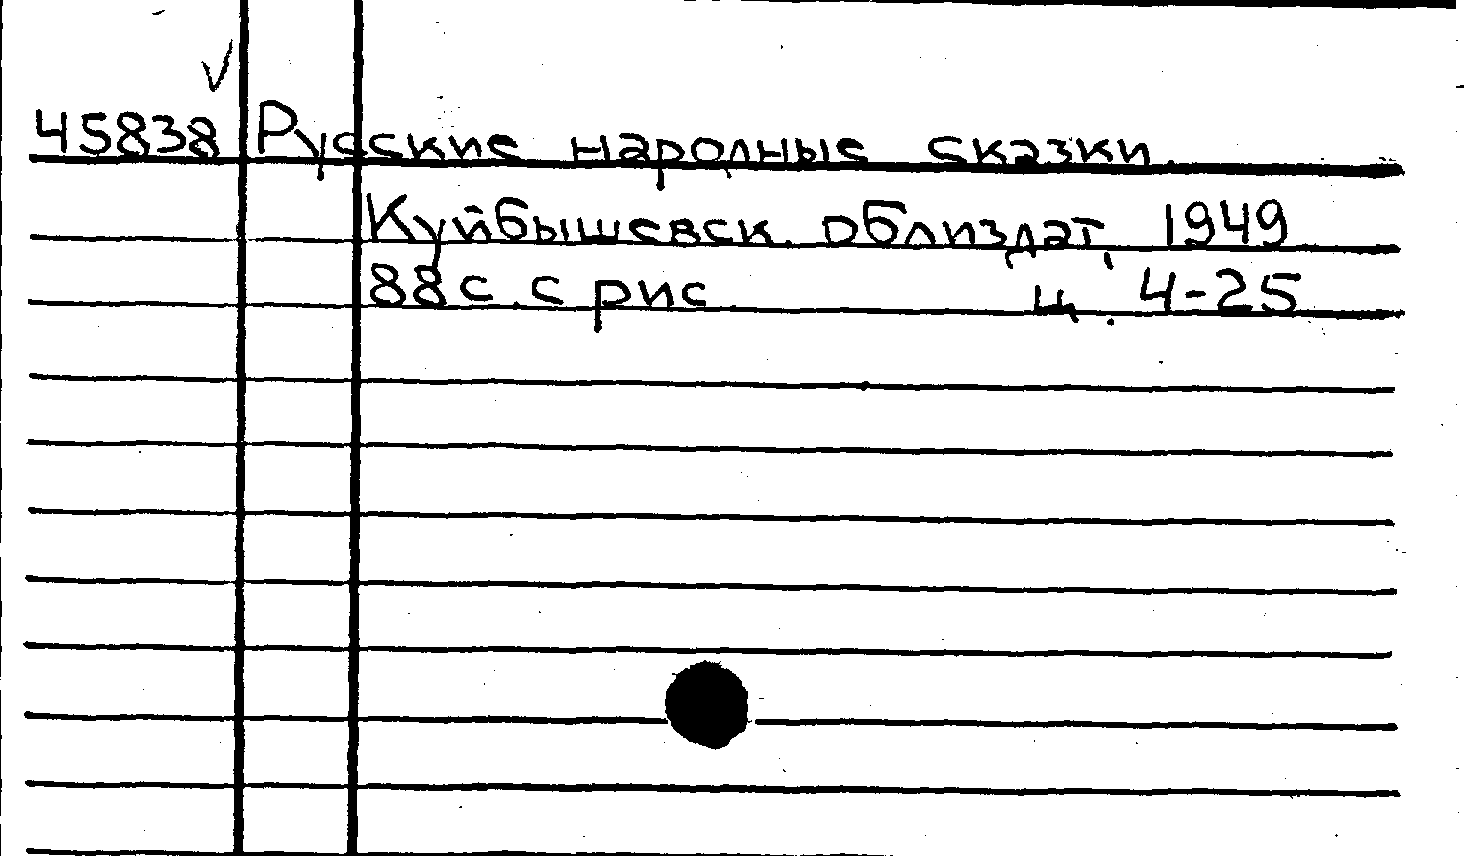 45838 Русские народные сказки.
Куйбышевск. облиздат, 1949
88 с. с рис ц. 4-25